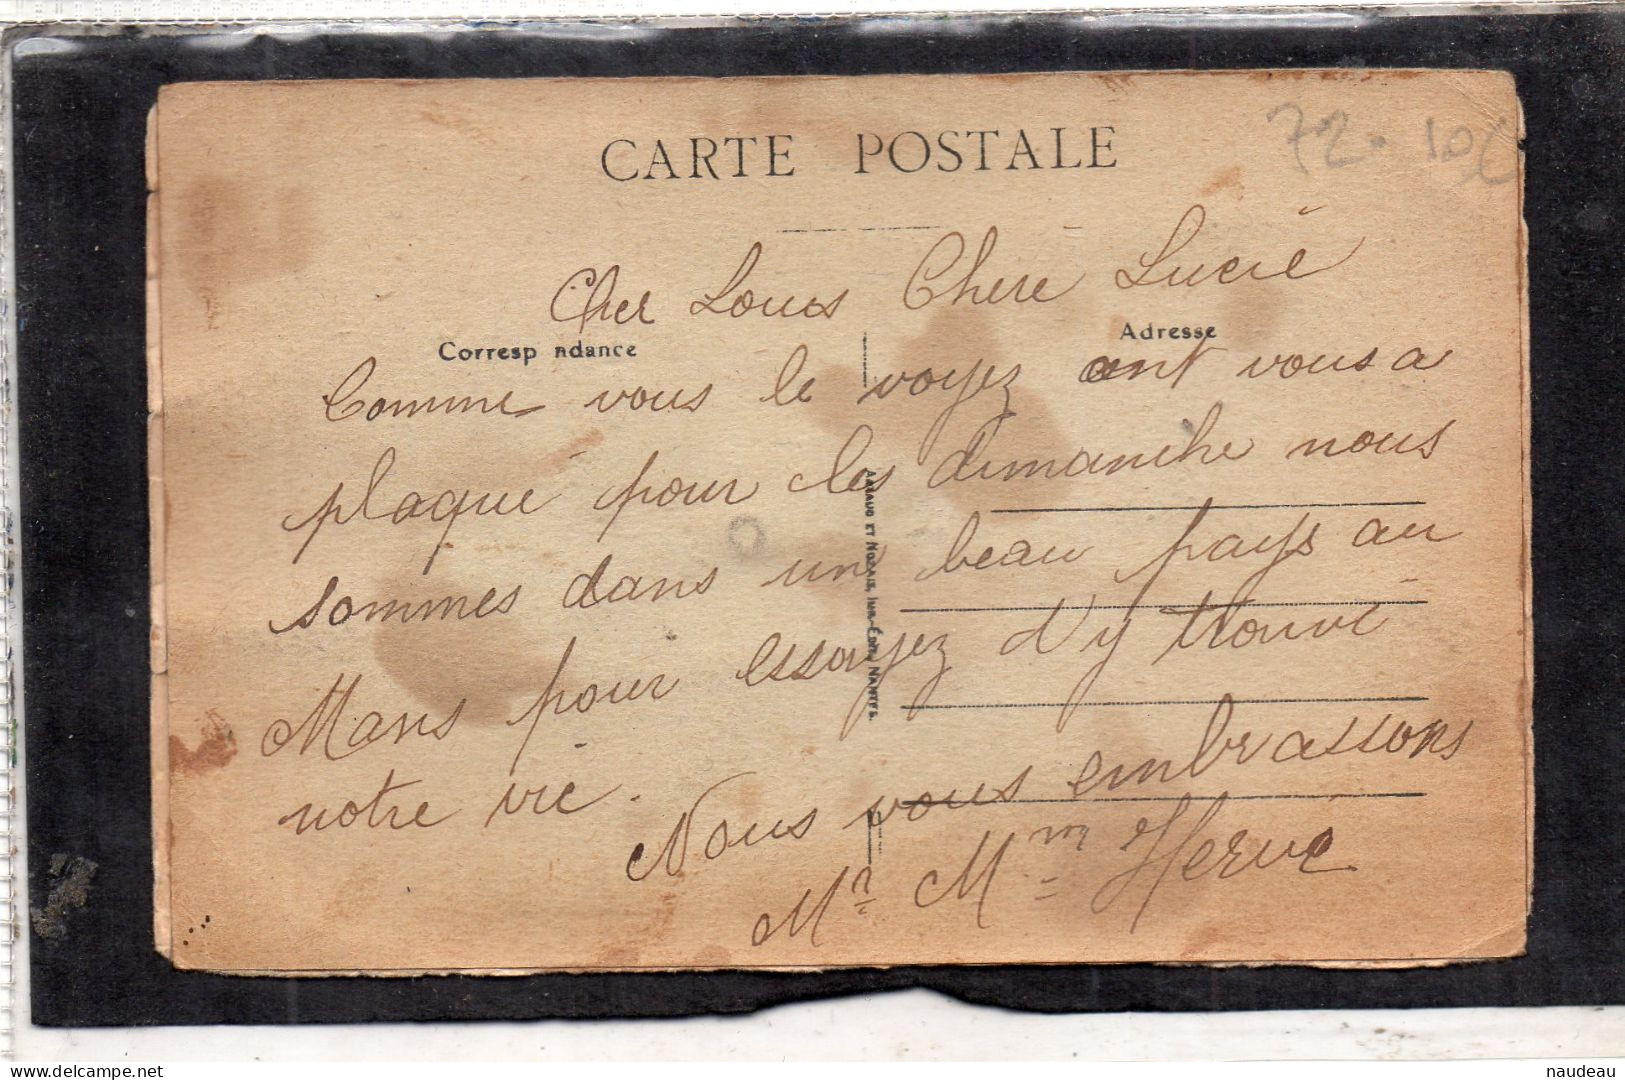 CARTE POSTALE
72. 10
Cher Louis Chère Lucie
Correspondance
Adresse
Comme vous le voyez ont vous a
plaqué pour les dimanche nous
sommes dans un beau pays au
Mans pour essayez d'y trouvé
notre vie.
Nous vous embrassons
Mr Mm Hervé
ARNAUD ET NOZAIS, IMP.-ÉDIT. NANTES.
naudeau